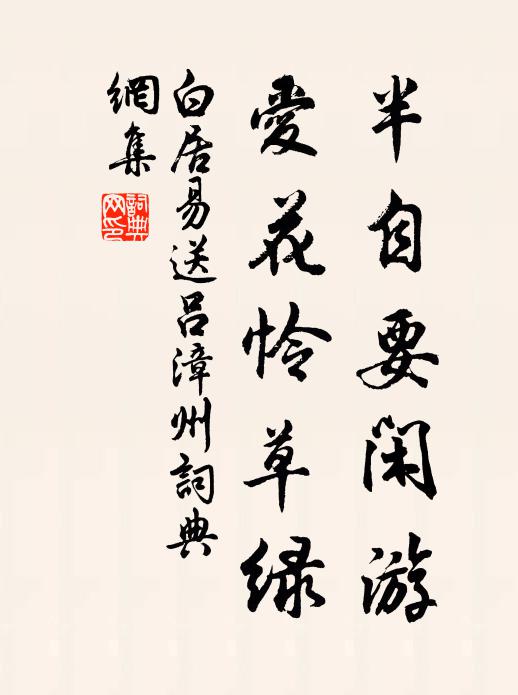 半自要闲游
愛花怜草绿
白居易送吕漳州詞典
網集
詞典
网印